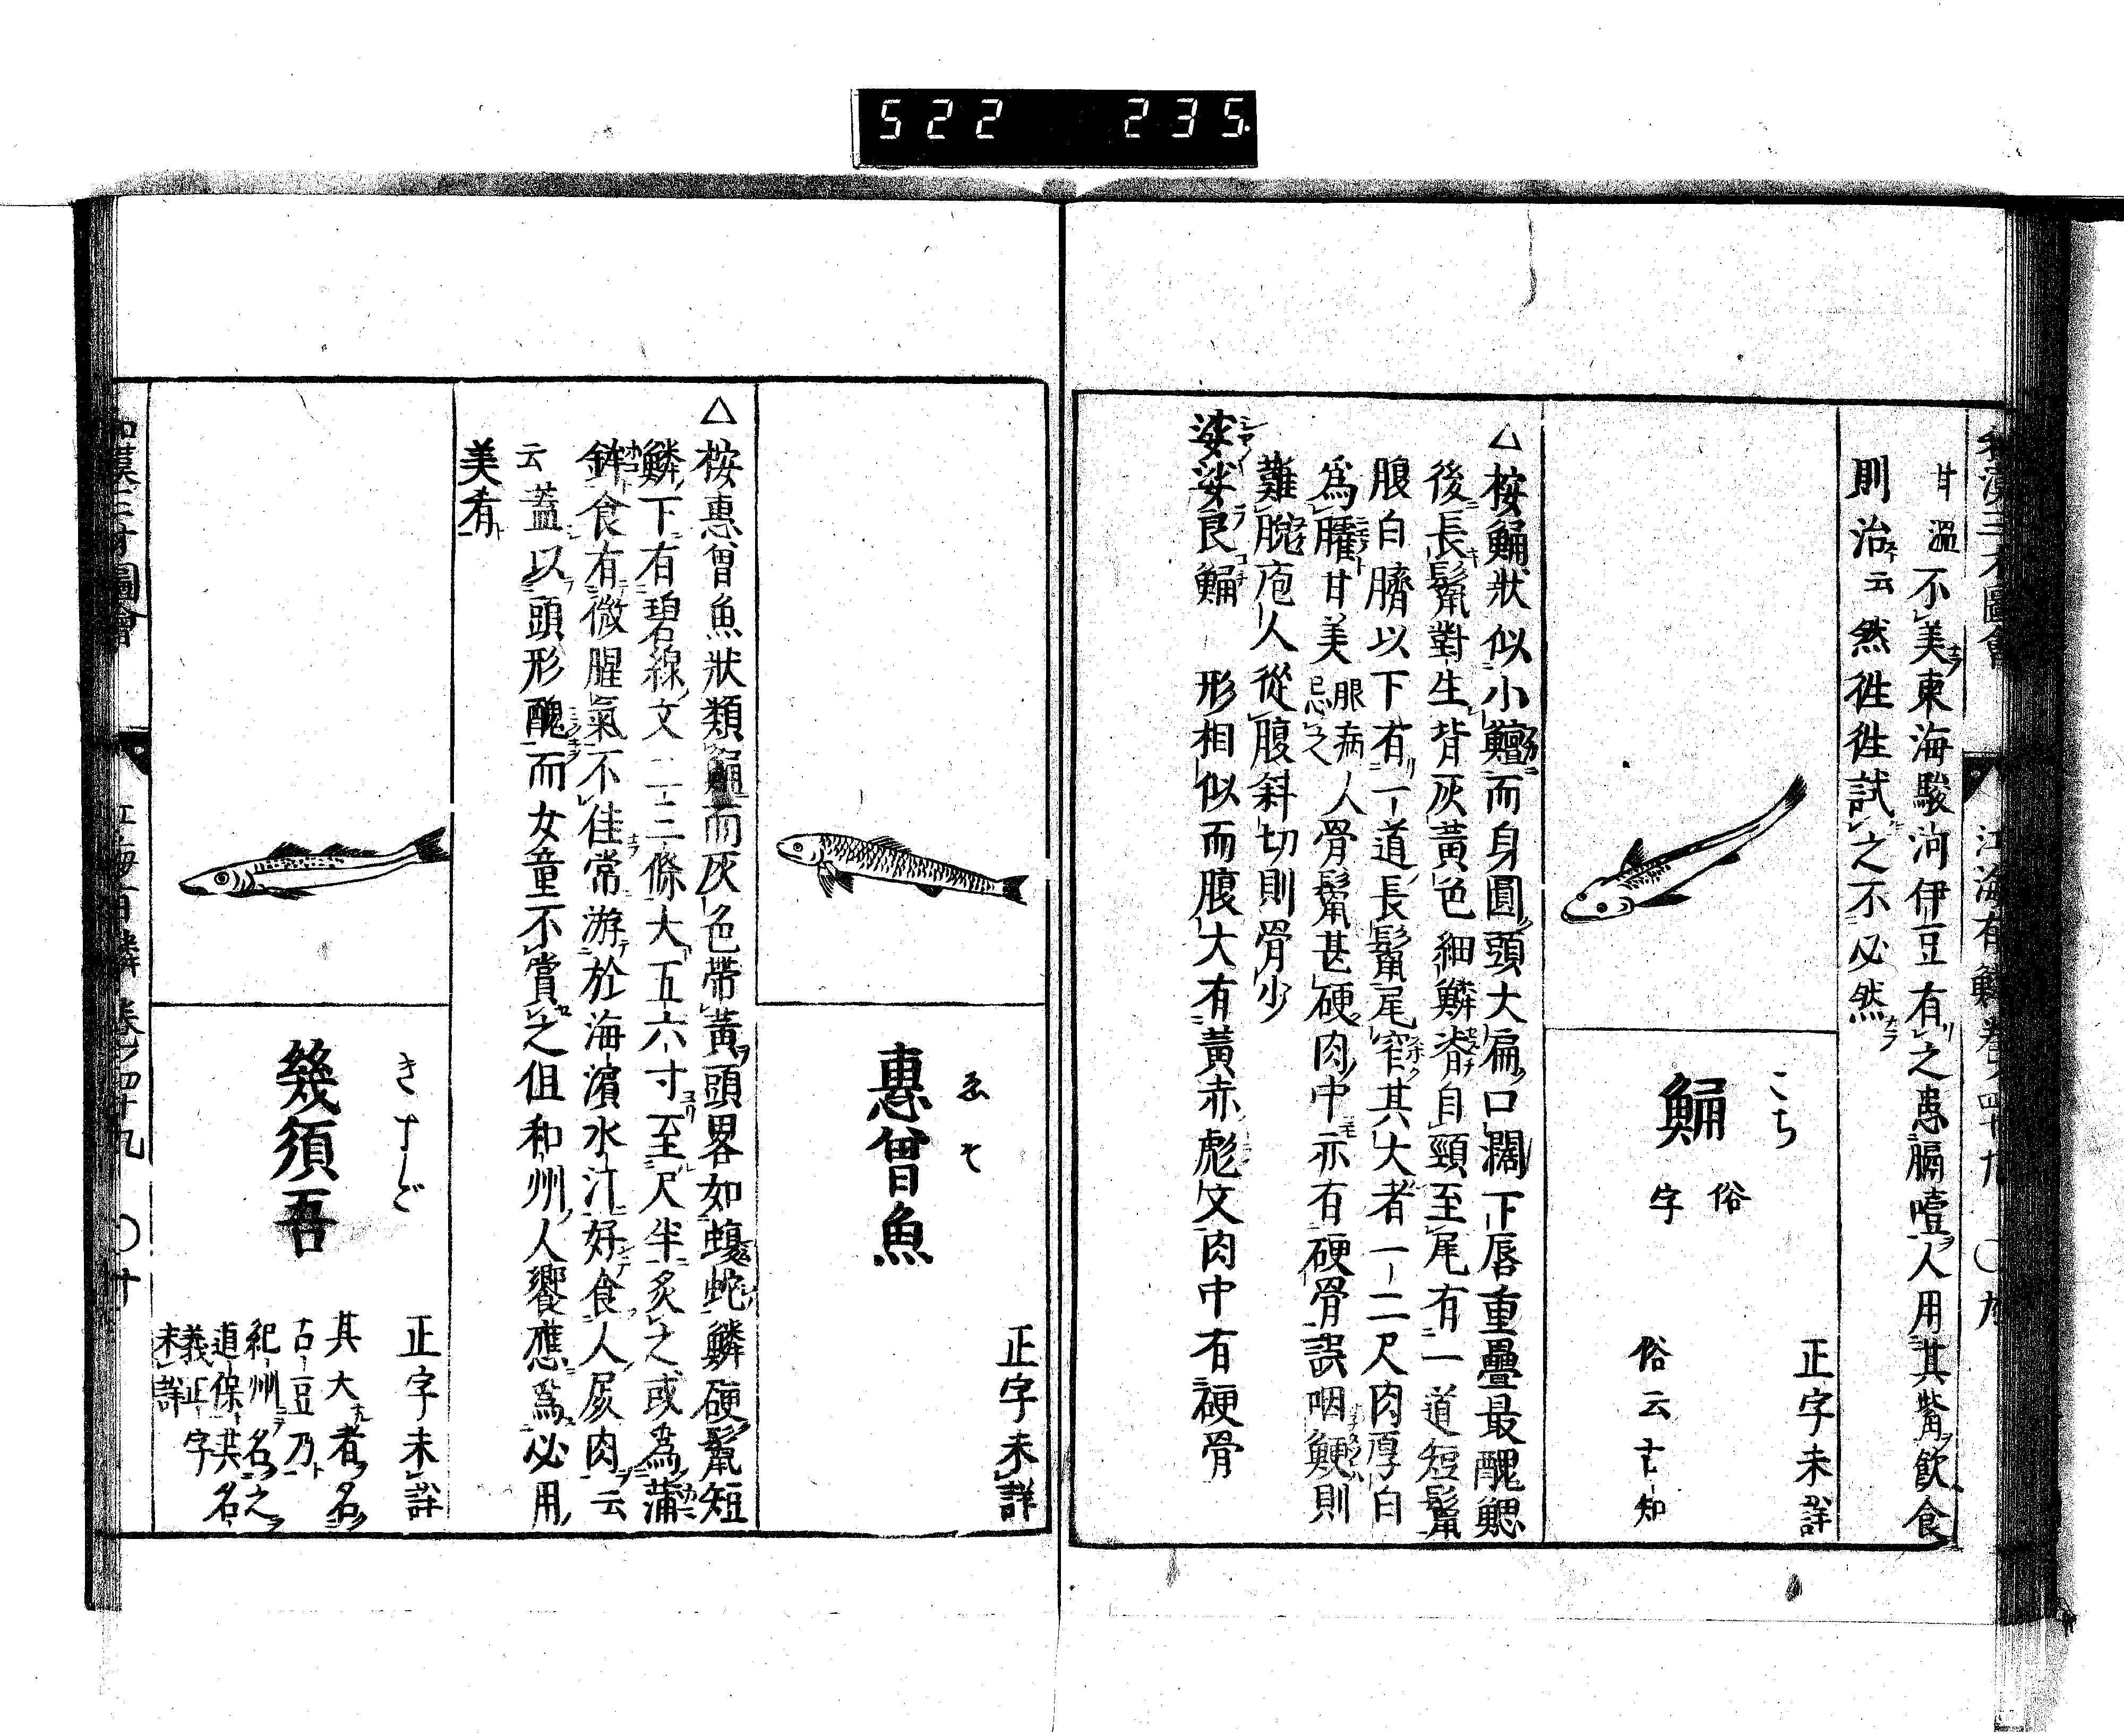 522 235.
和漢三才圖會 江海有鱗 卷之四十九 ○九
甘溫不美東海駿河伊豆有之患膈噎人用其觜飲食
則治云然徃徃試之不必然
こち
鯒 俗字
正字未詳
俗云古知
△按鯒狀似小鱣而身圓頭大扁口濶下唇重疊最醜鰓
後長鬣對生背灰黃色細鱗脊自頸至尾有一道短鬣
腹白臍以下有一道長鬣尾窄其大者一二尺肉厚白
爲臛甘美眼病人忌之骨鬣甚硬肉中亦有硬骨誤咽鯁則
難脫庖人從腹斜切則骨少
娑娑良鯒 形相似而腹大有黃赤彪文肉中有硬骨
ゑそ
惠曾魚
正字未詳
△按惠曾魚狀類鯒而灰色帶黃頭畧如蝮蛇鱗硬鬣短
鱗下有碧線文二三條大五六寸至尺半炙之或為蒲
鉾食有微腥氣不佳常游於海濱水汀好食人屍肉云
云蓋以頭形醜而女童不賞之但和州人饗應爲必用
美肴
きすご
幾須吾
正字未詳
其大者名
古豆乃
紀州名之
道保其名
義正字
未詳
和漢三才圖會 江海有鱗 卷之四十九 ○十